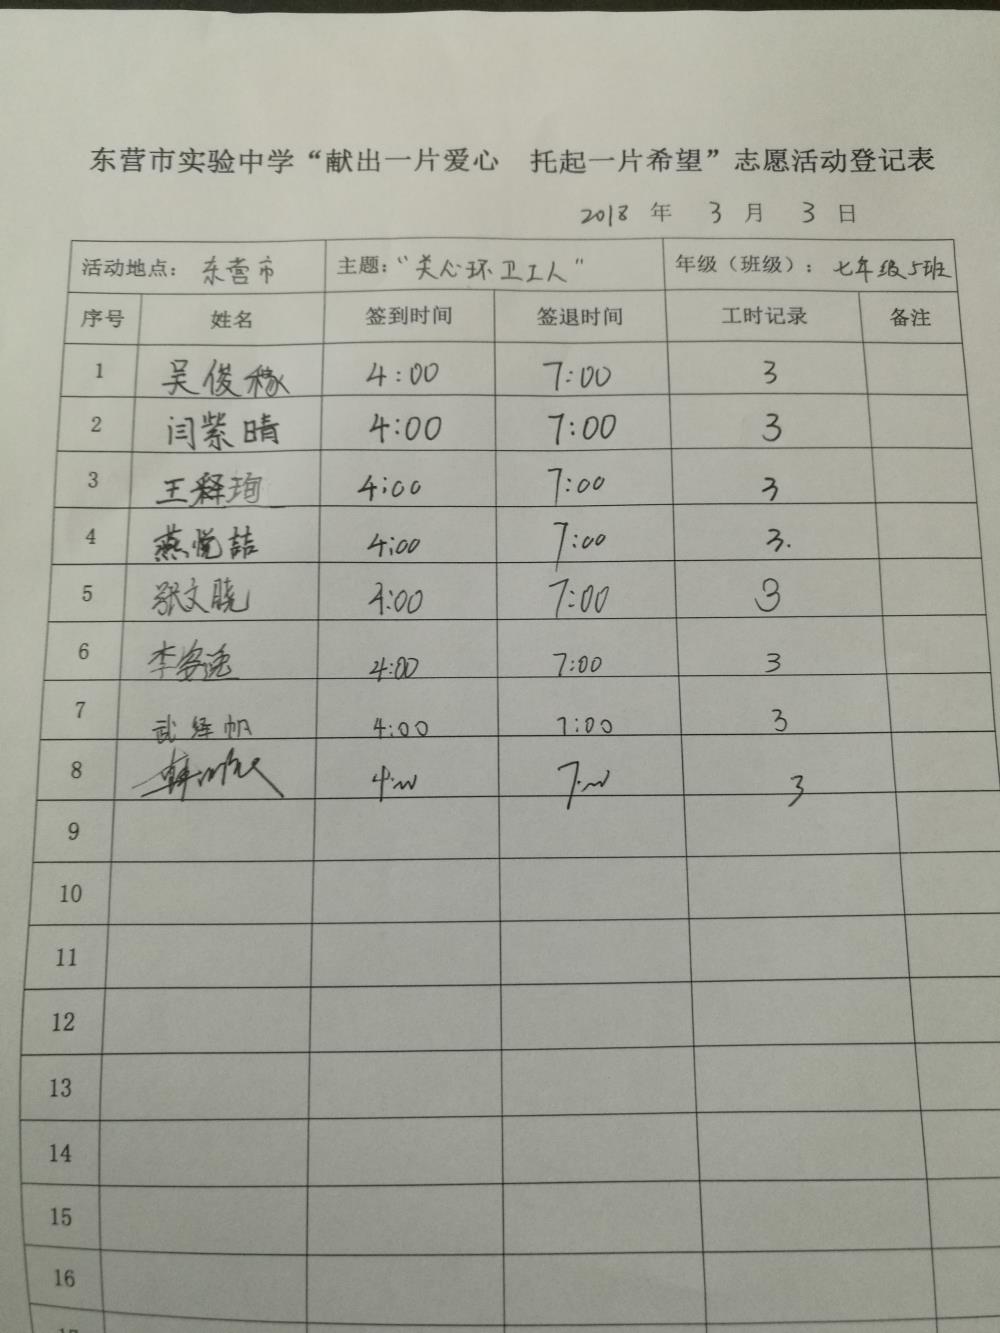 东营市实验中学“献出一片爱心 托起一片希望”志愿活动登记表
2018 年 3 月 3 日
活动地点：东营市 主题：“关心环卫工人” 年级（班级）：七年级5班
序号 姓名 签到时间 签退时间 工时记录 备注
1 吴俊稼 4:00 7:00 3
2 闫紫晴 4:00 7:00 3
3 王释珣 4:00 7:00 3
4 燕悦喆 4:00 7:00 3.
5 张文晓 4:00 7:00 3
6 李 4:00 7:00 3
7 武绎帆 4:00 7:00 3
8 韩 4:00 7:00 3
9
10
11
12
13
14
15
16